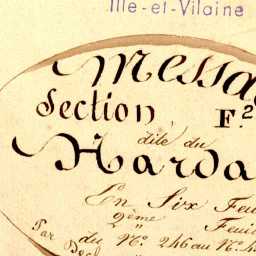 Ille-et-Vilaine
Messa
Section F.2
dite du
Harda
En Six Feu
2ème Feui
du N° 246 au N°
Par